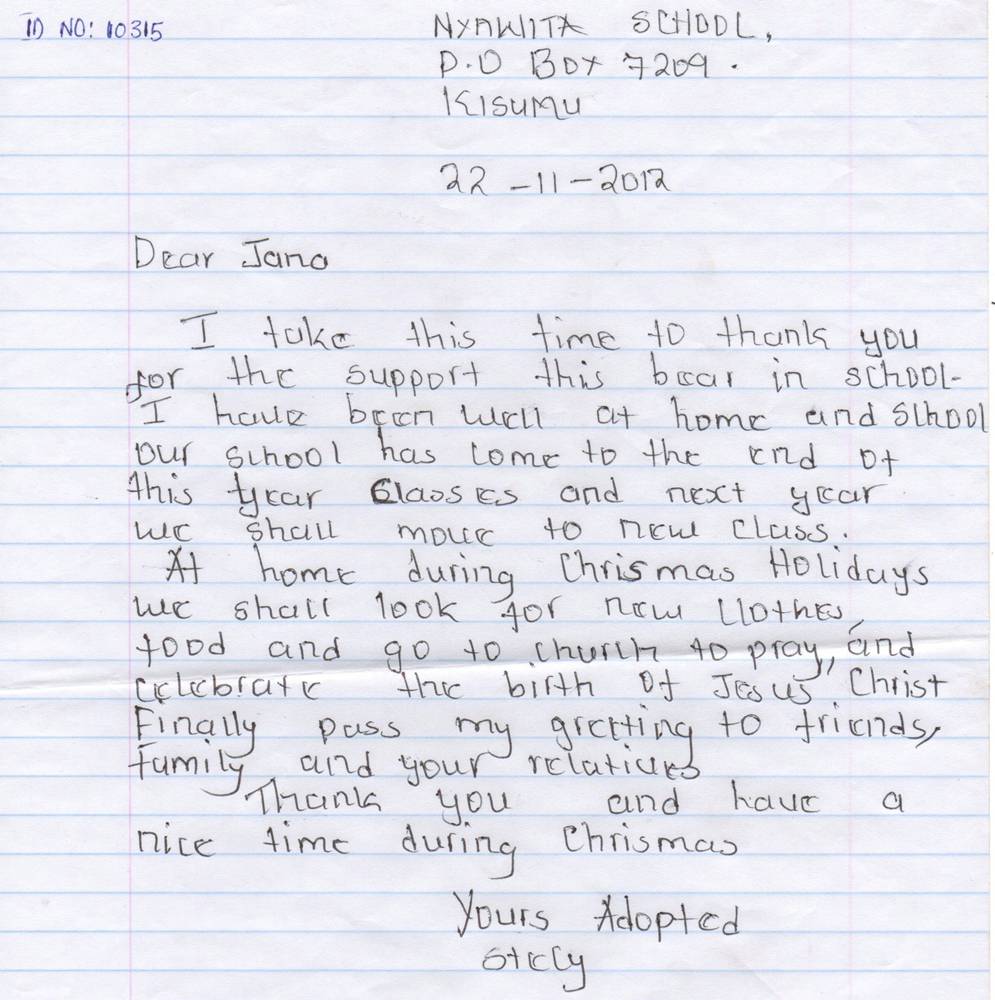 ID NO: 10315
NYAWITA SCHOOL,
P.O BOX 7209.
KISUMU
22-11-2012
Dear Jano
I take this time to thank you
for the support this bear in school-
I have been well at home and school
our school has come to the end of
this year classes and next year
we shall move to new class.
At home during Chrismas Holidays
we shall look for new clothes,
food and go to church to pray, and
celebrate the birth of Jesus Christ
Finally pass my greeting to friends,
family and your relatives
Thank you and have a
nice time during Chrismas
Yours Adopted